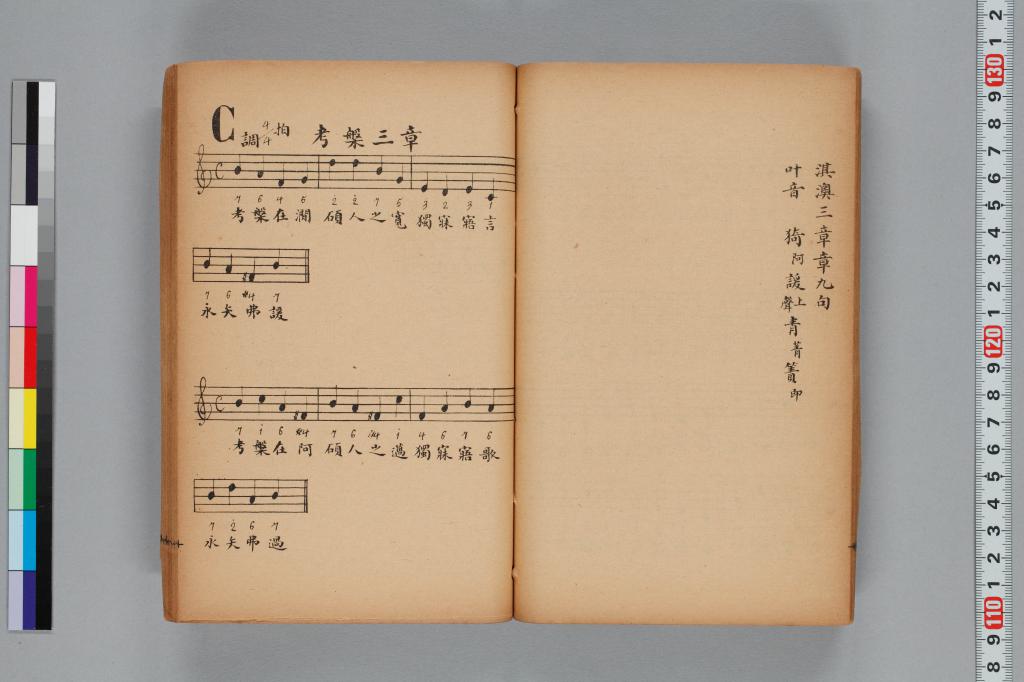 C調 4/4 拍 考槃三章
7 6 4 5 2̇ 2̇ 7 5 3 2 3 1
考槃在澗 碩人之寬 獨寐寤言
7 6 #4 7
永矢弗諼
7 i 6 #4 7 6 #4 i 4 6 7 6
考槃在阿 碩人之薖 獨寐寤歌
7 2̇ 6 7
永矢弗過
淇澳三章章九句
叶音 猗阿諼上聲青菁簀即
2
1
130
9
8
7
6
5
4
3
2
1
120
9
8
7
6
5
4
3
2
1
110
9
8